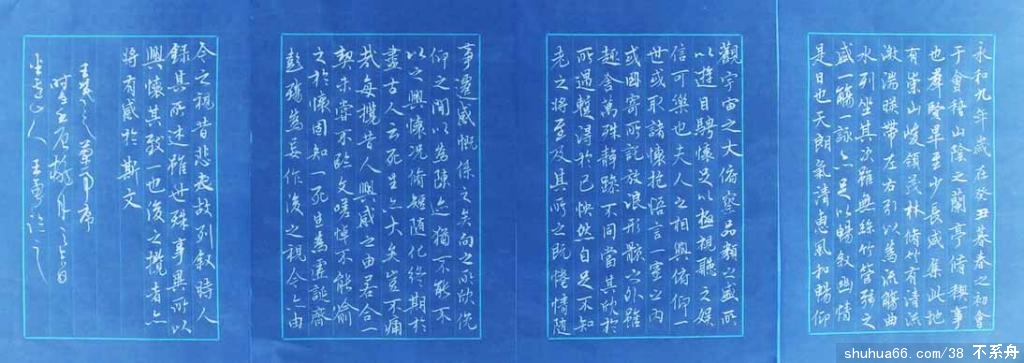 永和九年歲在癸丑暮春之初會
于會稽山陰之蘭亭脩禊事
也羣賢畢至少長咸集此地
有崇山峻領茂林脩竹有清流
激湍暎帶左右引以為流觴曲
水列坐其次雖無絲竹管弦之
盛一觴一詠亦足以暢敘幽情
是日也天朗氣清惠風和暢仰
觀宇宙之大俯察品類之盛所
以遊目騁懷足以極視聽之娛
信可樂也夫人之相與俯仰一
世或取諸懷抱悟言一室之內
或因寄所託放浪形骸之外雖
趣舍萬殊靜躁不同當其欣於
所遇暫得於己怏然自足不知
老之將至及其所之既惓情隨
事遷感慨係之矣向之所欣俛
仰之間以為陳迹猶不能不
以之興懷況脩短隨化終期於
盡古人云死生亦大矣豈不痛
哉每攬昔人興感之由若合一
契未嘗不臨文嗟悼不能喻
之於懷固知一死生為虛誕齊
彭殤為妄作後之視今亦由
今之視昔悲夫故列敘時人
錄其所述雖世殊事異所以
興懷其致一也後之攬者亦
將有感於斯文
王羲之蘭亭序
shuhua66.com/38 不系舟